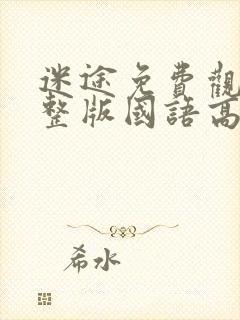 迷途免費觀
整版國語高
希水